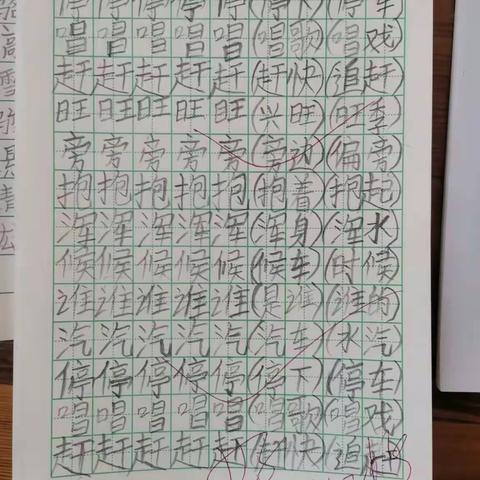 停停停停停(停下)(停车
唱唱唱唱唱(唱歌)(唱戏
赶赶赶赶赶(赶快)(追赶)
旺旺旺旺旺(兴旺)(旺季
旁旁旁旁旁(旁边)(偏旁)
抱抱抱抱抱(抱着)(抱起)
浑浑浑浑浑(浑身)(浑水)
候候候候候(候车)(时候)
谁谁谁谁谁(是谁)(谁的)
汽汽汽汽汽(汽车)(水汽)
停停停停停(停下)(停车)
唱唱唱唱(唱歌)(唱戏)
赶赶赶赶赶(赶快)(追赶)